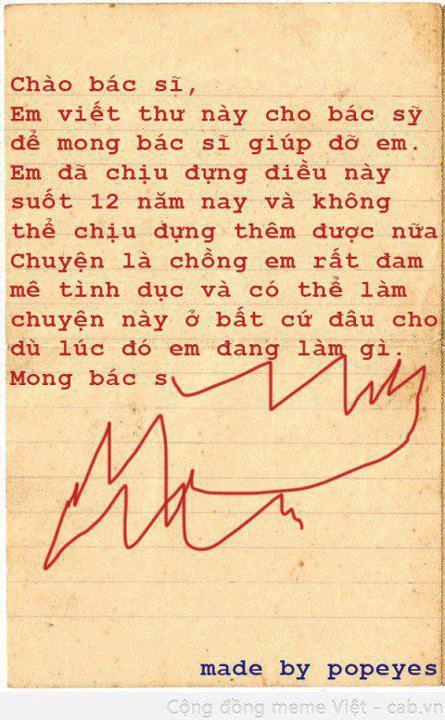 Chào bác sĩ,
Em viết thư này cho bác sỹ
để mong bác sĩ giúp đỡ em.
Em đã chịu đựng điều này
suốt 12 năm nay và không
thể chịu đựng thêm được nữa
Chuyện là chồng em rất đam
mê tình dục và có thể làm
chuyện này ở bất cứ đâu cho
dù lúc đó em đang làm gì.
Mong bác s
made by popeyes
Cộng đồng meme Việt - cab.vn